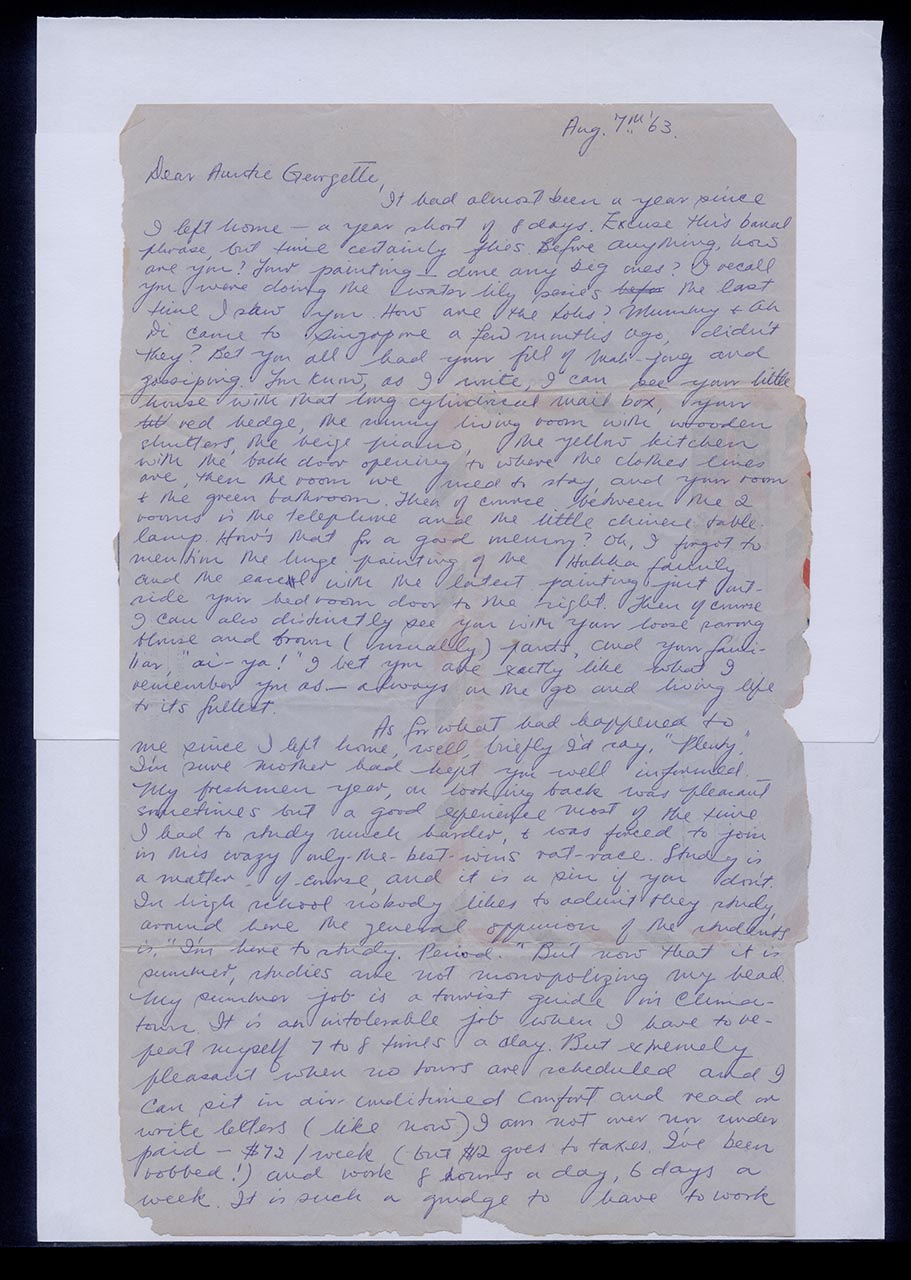 Aug. 7TH '63.
Dear Auntie Georgette,
It had almost been a year since
I left home — a year short of 8 days. Excuse this banal
phrase, but time certainly flies. Before anything, how
are you? Your painting — done any big ones? I recall
you were doing the water lily series the last
time I saw you. How are the Lohs? Mummy & Ah
Di came to Singapore a few months ago, didn't
they? Bet you all had your fill of mah-jong and
gossiping. You know, as I write, I can see your little
house with that long cylindrical mail box, your
red hedge, the sunny living room with wooden
shutters, the beige piano, the yellow kitchen
with the back door opening to where the clothes lines
are, then the room we used to stay, and your room
& the green bathroom. Then of course between the 2
rooms is the telephone and the little chinese table
lamp. How's that for a good memory? Oh, I forgot to
mention the huge painting of the Hakka family
and the easel with the latest painting just out-
side your bedroom door to the right. Then of course
I can also distinctly see you with your loose sarong
blouse and brown (usually) pants, and your fami-
liar, "ai-ya!" I bet you are exactly like what I
remember you as — always on the go and living life
to its fullest.
As for what had happened to
me since I left home, well, briefly I'd say, "Plenty."
I'm sure mother had kept you well informed.
My freshmen year, on looking back was pleasant
sometimes but a good experience most of the time
I had to study much harder, & was forced to join
in this crazy only-the-best-wins rat-race. Study is
a matter-of-course, and it is a sin if you don't.
In high school nobody likes to admit they study,
around here the general oppinion of the students
is, "I'm here to study. Period." But now that it is
summer, studies are not monopolizing my head.
My summer job is a tourist guide in China-
town. It is an intolerable job when I have to re-
peat myself 7 to 8 times a day. But extremely
pleasant when no tours are scheduled and I
can sit in air-conditioned comfort and read or
write letters (like now) I am not over nor under
paid — $72/week (but $12 goes to taxes. I've been
robbed!) and work 8 hours a day, 6 days a
week. It is such a grudge to have to work